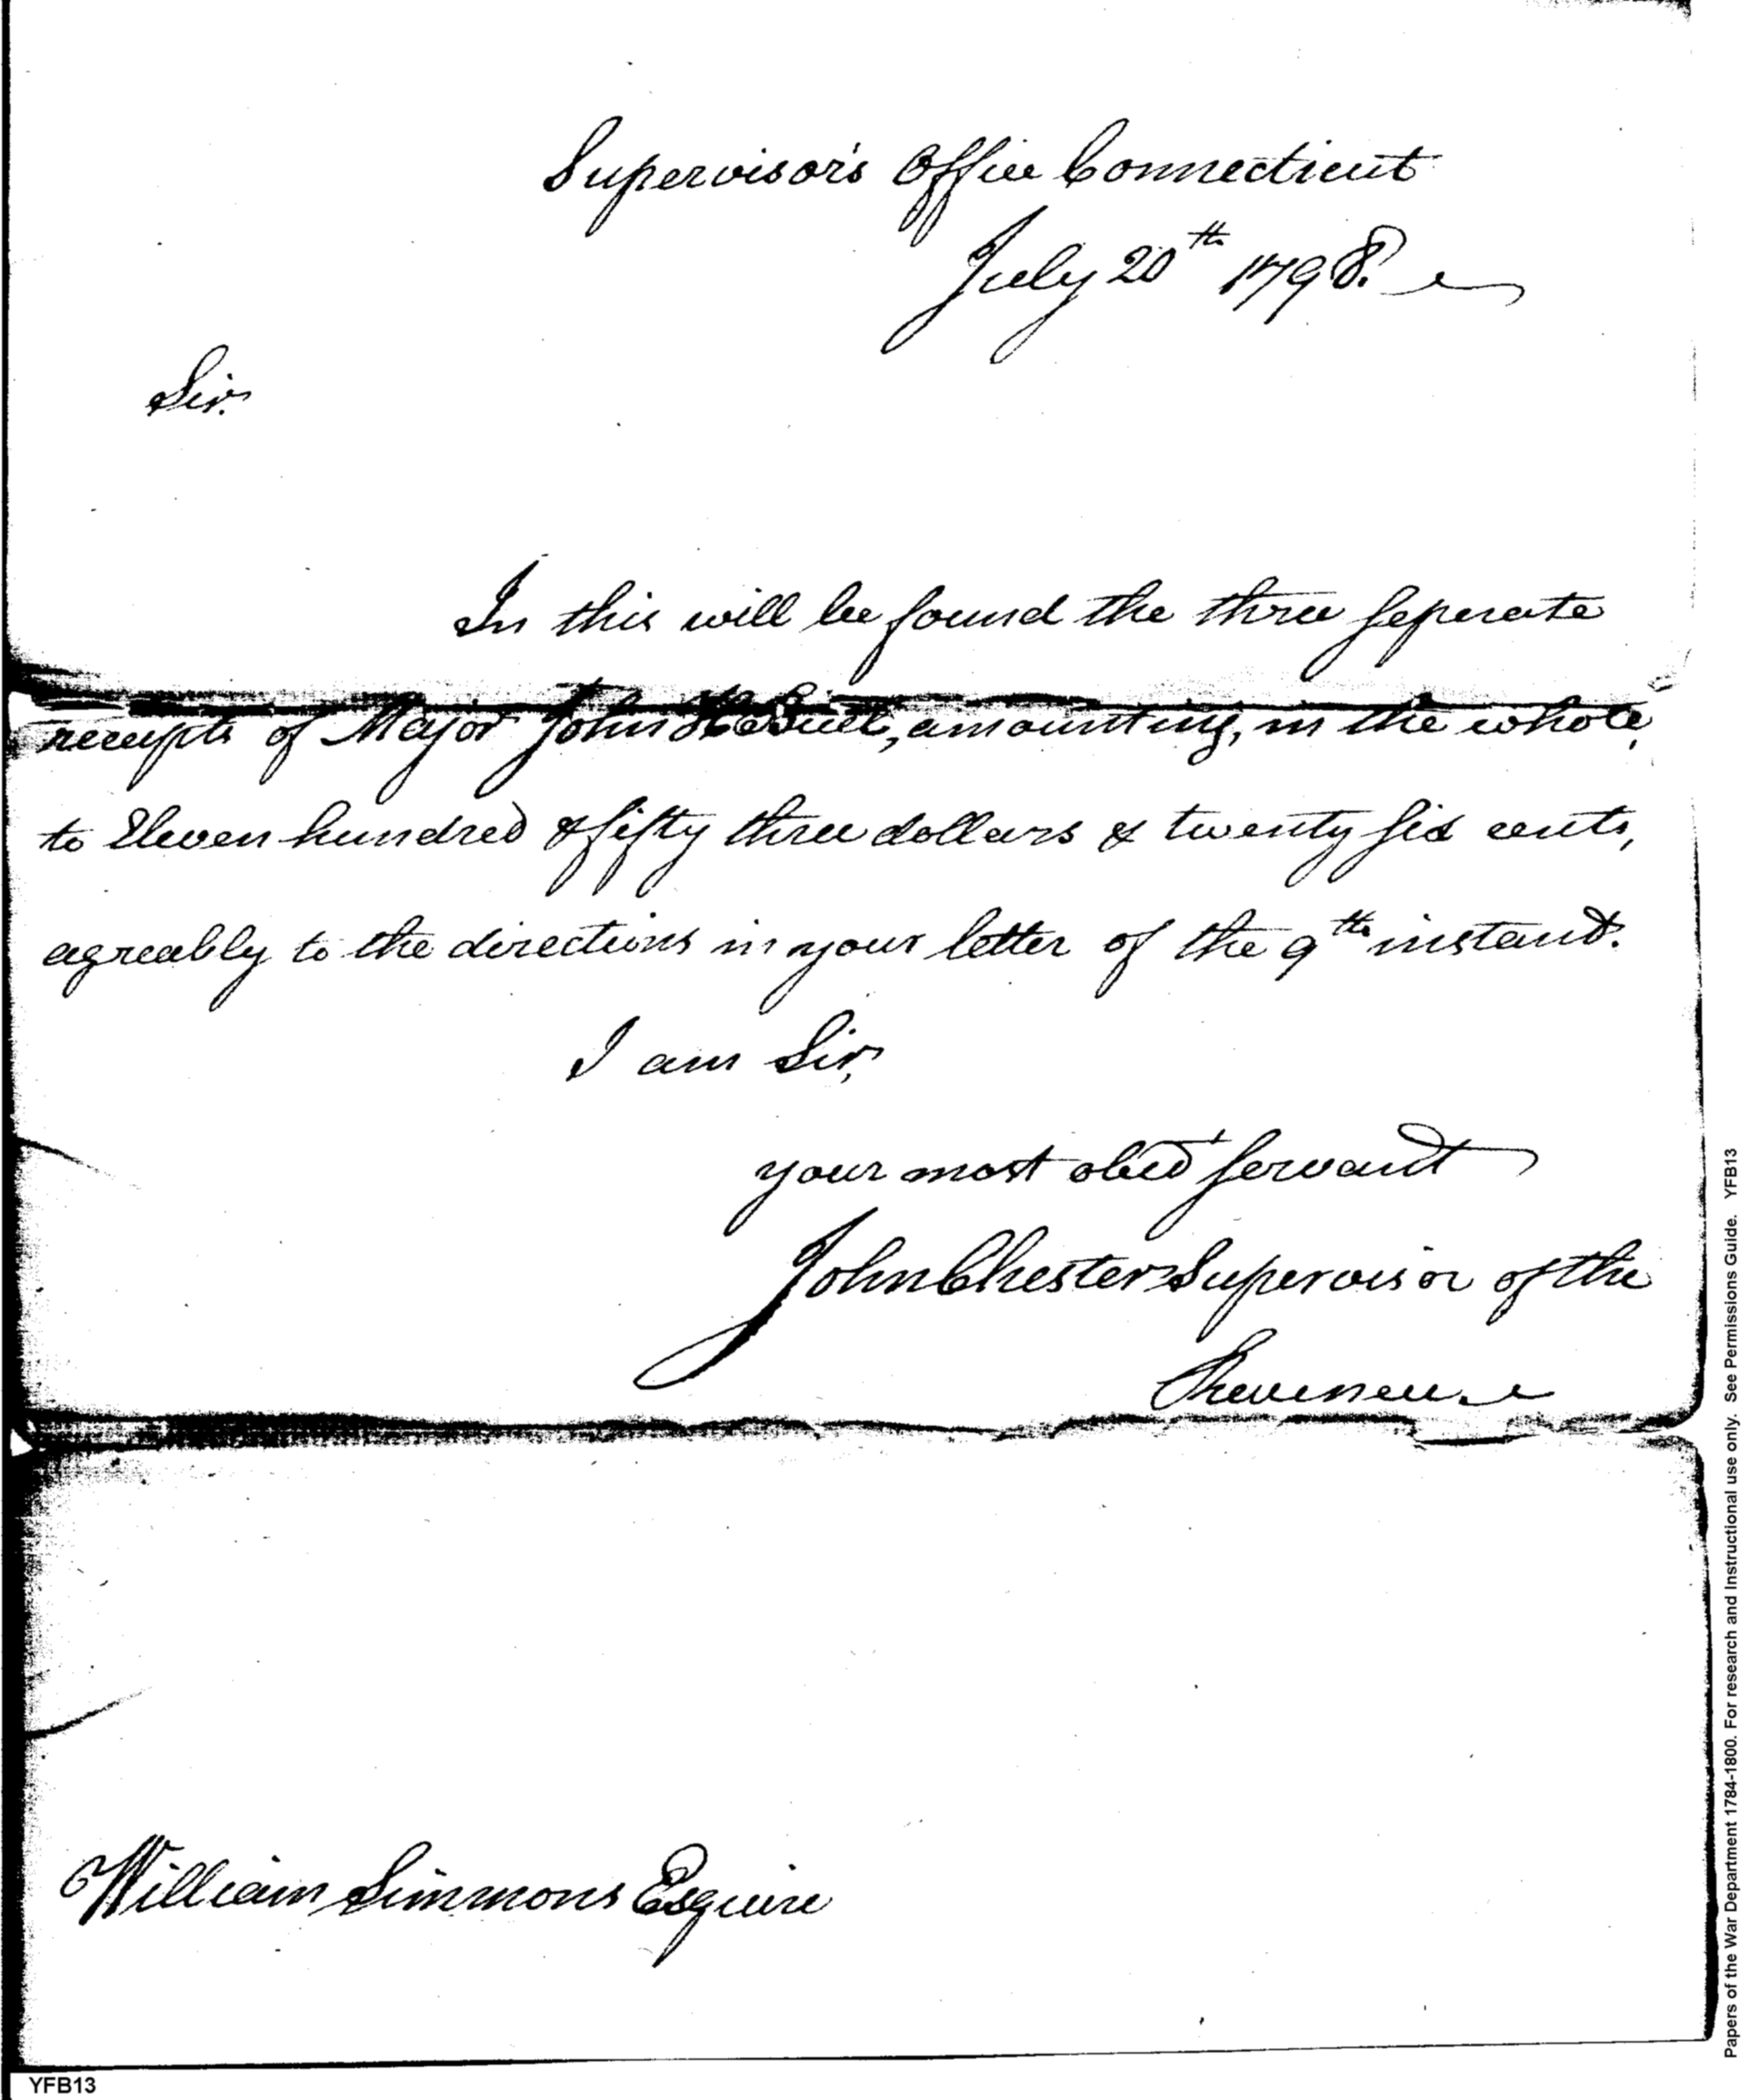 Supervisor's Office Connecticut
July 20th 1798.
Sir.
In this will be found the three seperate
receipts of Major John H Buell, amounting, in the whole,
to Eleven hundred & fifty three dollars & twenty six cents,
agreably to the directions in your letter of the 9th instant.
I am Sir,
your most obedt servant
John Chester Supervisor of the
Revenue
William Simmons Esquire
YFB13
Papers of the War Department 1784-1800. For research and Instructional use only. See Permissions Guide. YFB13